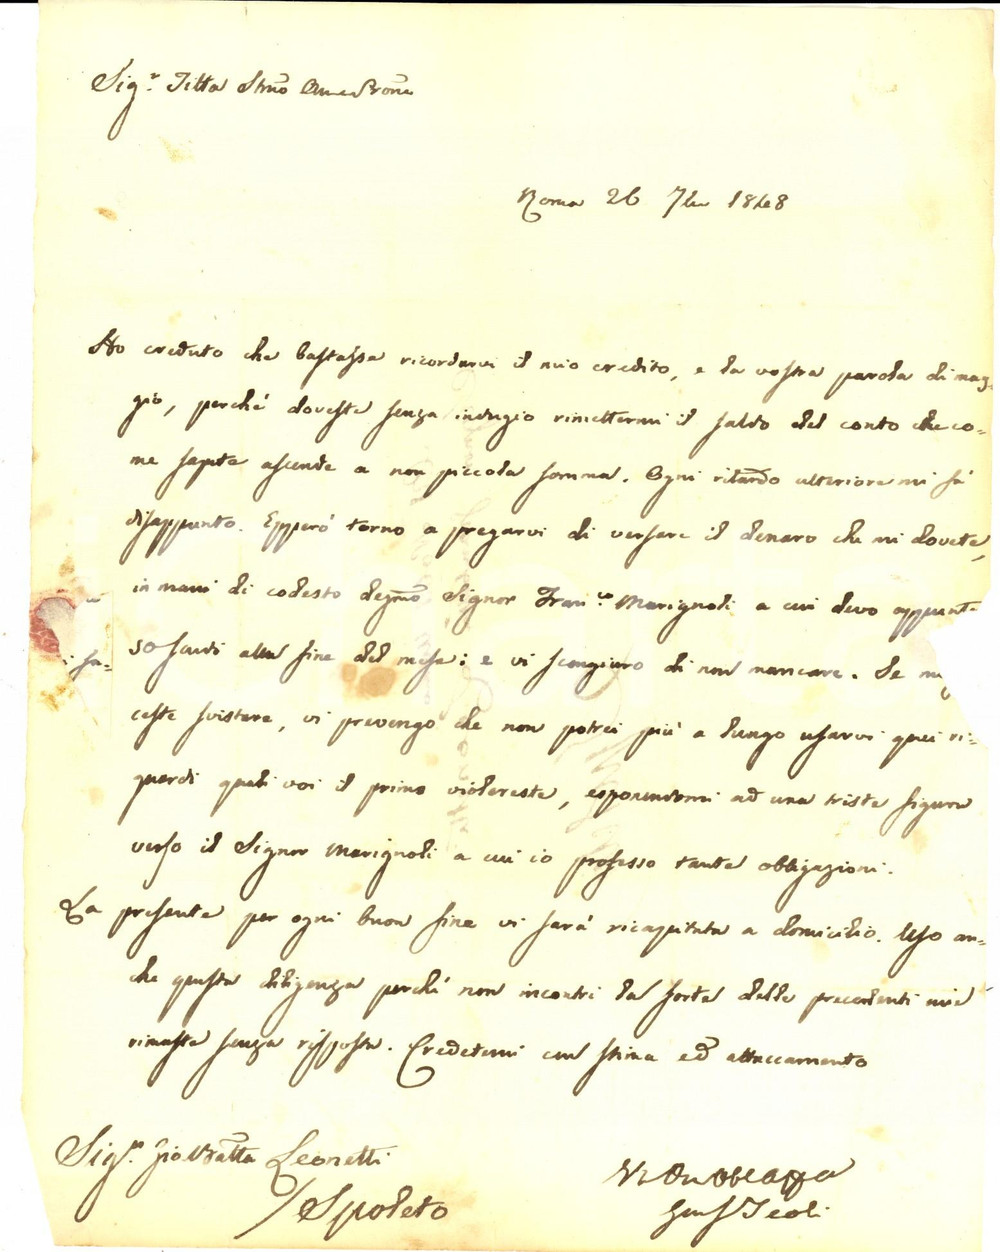 Sig.r Titta Stmo Amco Prone
Roma 26 7bre 1848
Ho creduto che bastasse ricordarvi il mio credito, e la vostra parola di mag-
gio, perché doveste senza indugio rimettermi il saldo del conto che co-
me sapete ascende a non piccola somma. Ogni ritardo ulteriore mi fà
disappunto. Epperò torno a pregarvi di versare il denaro che mi dovete,
in mani di codesto degmo Signor Fran.co Marignoli a cui devo appunto
50 scudi alla fine del mese; e vi scongiuro di non mancare. Se
ceste svistare, vi prevengo che non potrei più a lungo usarvi quei ri-
guardi quali voi il primo violereste, esponendomi ad una triste figura
verso il Signor Marignoli a cui io professo tante obbligazioni.
La presente per ogni buon fine vi sarà ricapitata a domicilio. Uso an-
che questa diligenza perché non incontri la sorte delle precedenti mie
rimaste senza risposta. Credetemi con stima ed attaccamento
Sig.r Gio Batta Leonetti
/ Spoleto
Gius Teoli